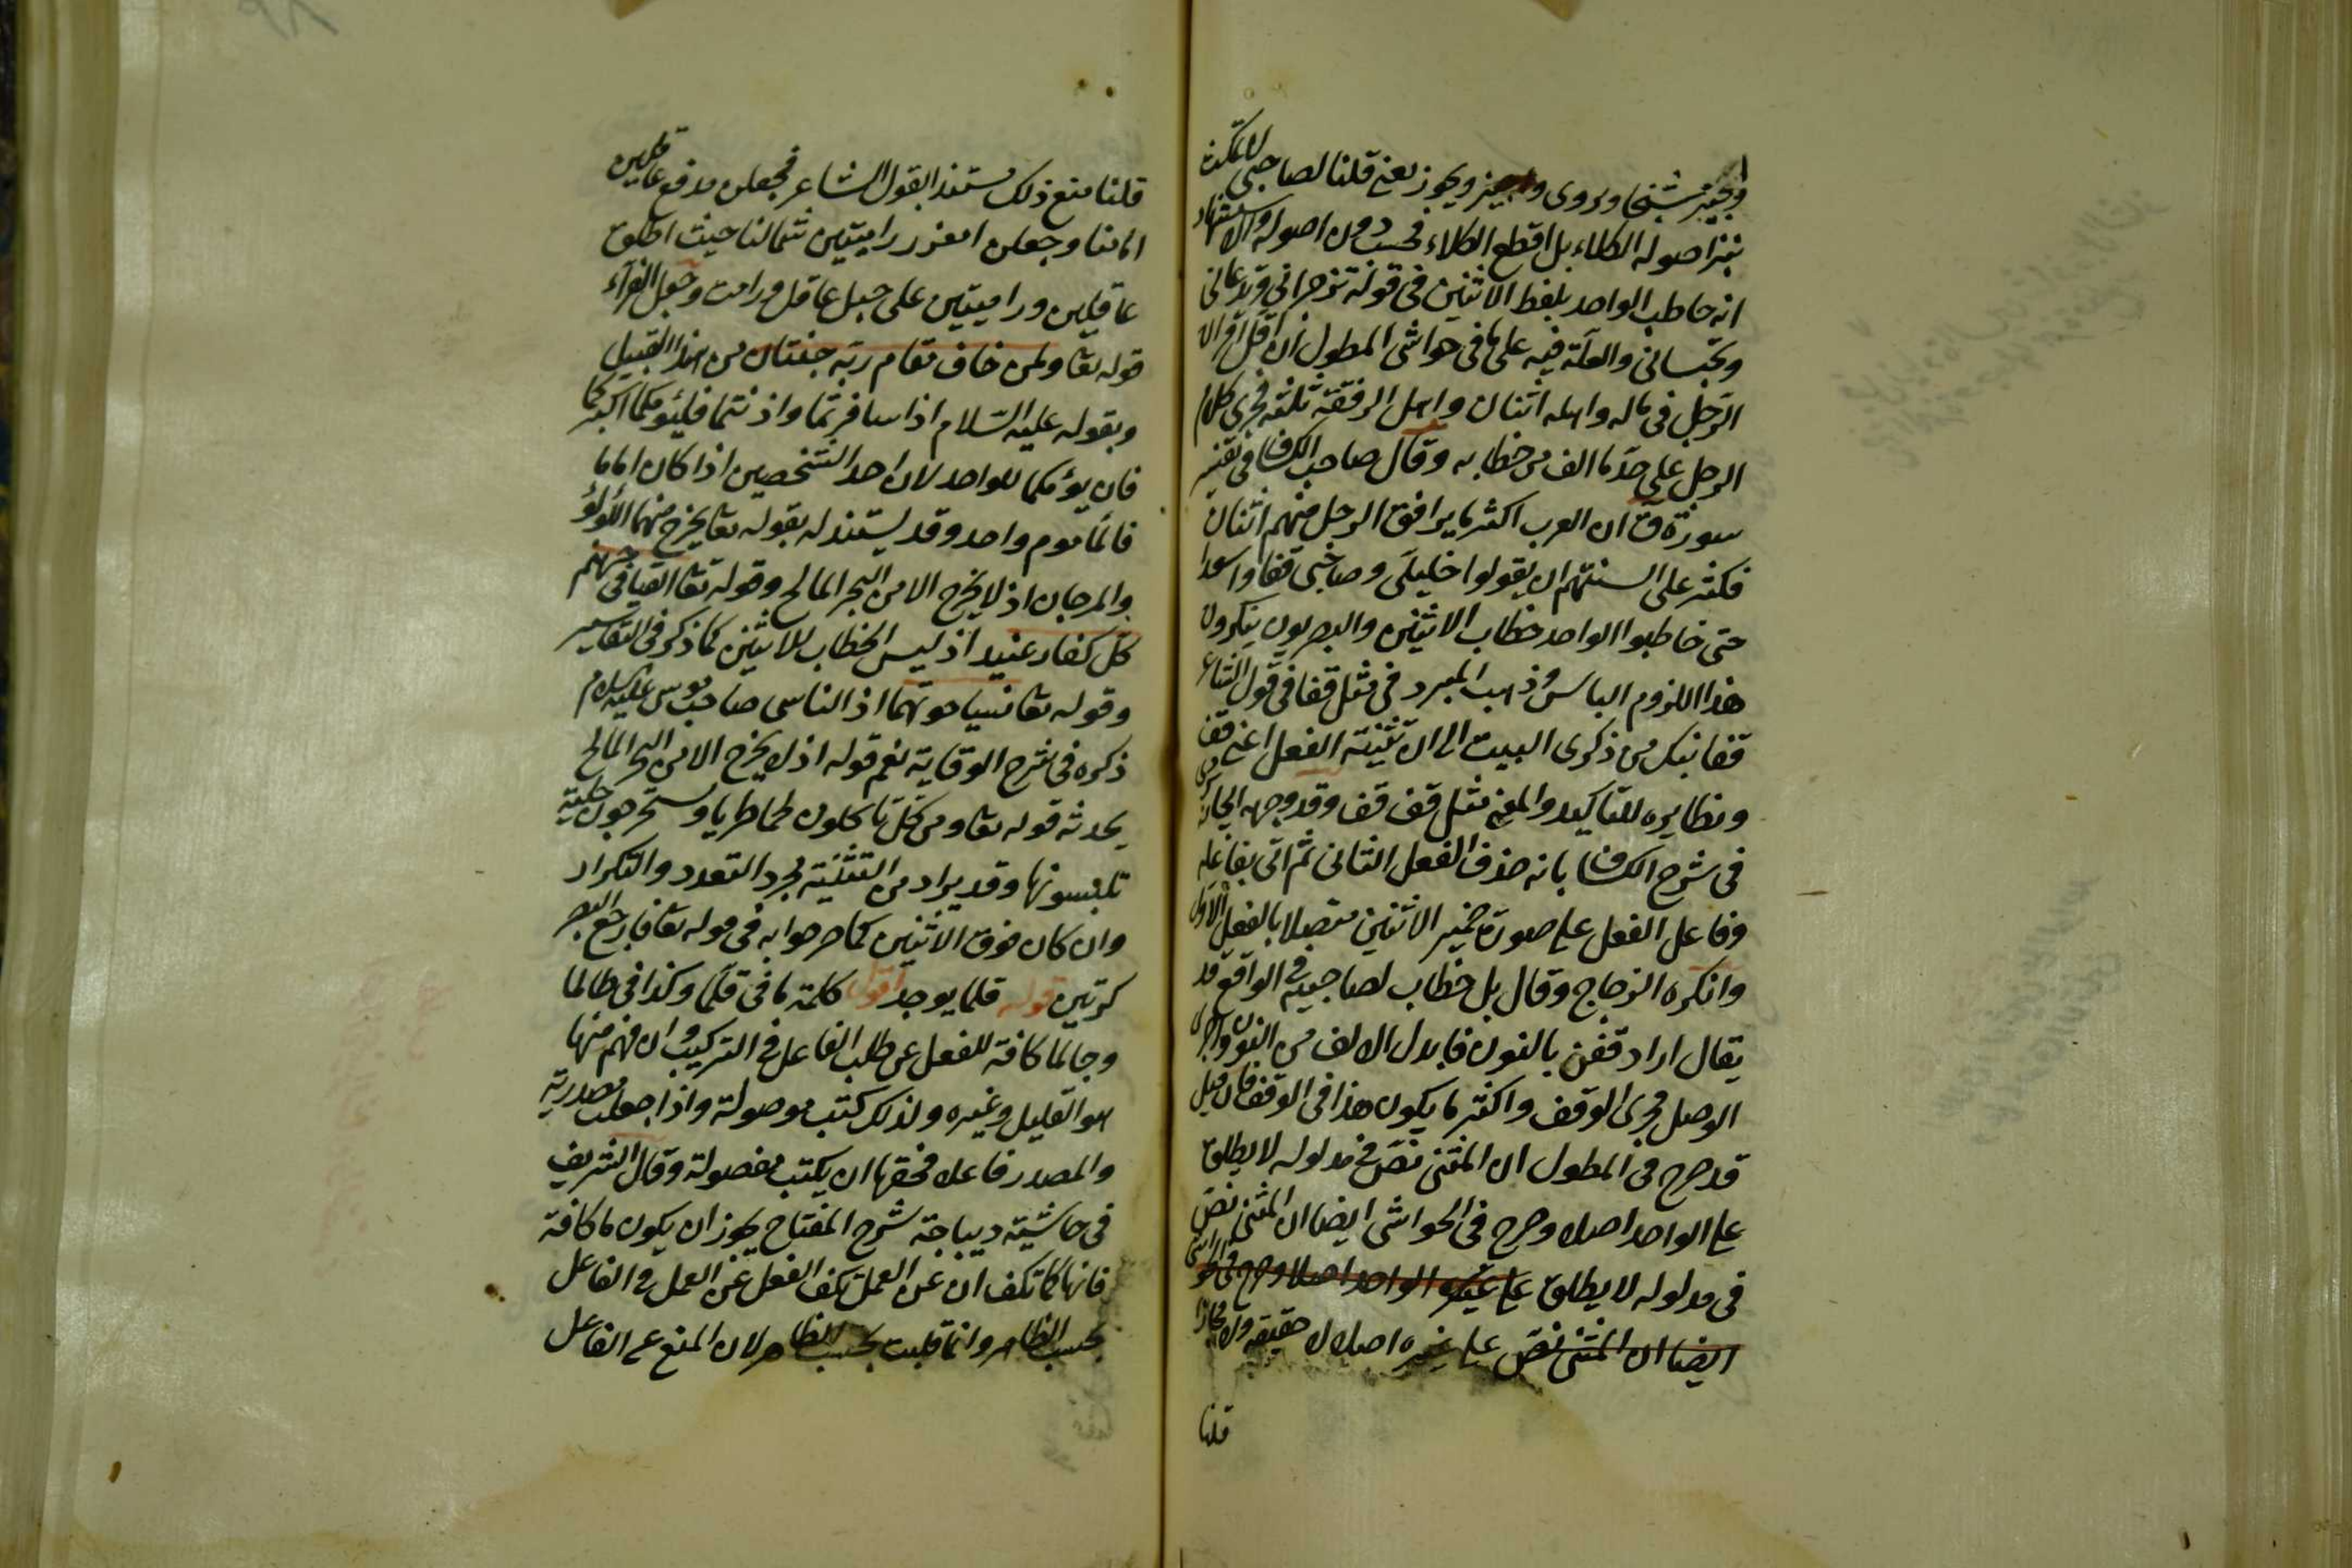 واجتز شيخا ويروى واجتز ويجوز يعنى قلنا لصاحبى لا تمكث
بنزع اصوله الكلاء بل اقطع الكلاء فحسب دون اصوله والاستشهاد
انه خاطب الواحد بلفظ الاثنين فى قوله تزجرانى وتدعانى
وتحبسانى والعلة فيه على ما فى حواشى المطول ان اقل اعوان
الرجل فى ماله واهله اثنان واهل الرفقة ثلثة فجرى كلام
الرجل على حد ما الف من خطابه وقال صاحب الكشاف فى تفسير
سورة ق ان العرب اكثر ما يرافق الرجل منهم اثنان
فكثر على السنتهم ان يقولوا خليلى وصاحبى قفا واسعدا
حتى خاطبوا الواحد خطاب الاثنين والبصريون ينكرون
هذا للزوم الباس وذهب المبرد فى مثل قفا فى قول الشاعر
قفا نبك من ذكرى البيت الى ان تثنية الفعل اعنى قف
ونظايره للتاكيد والمعنى مثل قف قف وقد وجهه الجاربردى
فى شرح الكشاف بانه حذف الفعل الثانى ثم اتى بفاعله
وفاعل الفعل على صورة ضمير الاثنين متصلا بالفعل الاول
وانكره الزجاج وقال بل خطاب لصاحبيه فى الواقع وقد
يقال اراد قفن بالنون فابدل الالف من النون واجرى
الوصل مجرى الوقف واكثر ما يكون هذا فى الوقف فان قيل
قد صرح فى المطول ان المثنى نص فى مدلوله لا يطلق
على الواحد اصلا وصرح فى الحواشى ايضا ان المثنى نص
فى مدلوله لا يطلق على غيره الواحد اصلا وصرح فى الحواشى
ايضا ان المثنى نص على غيره اصلا لا حقيقة ولا مجازا
قلنا
قلنا منع ذلك مستندا بقول الشاعر فجعلن مدفع عاقلين
ايامنا وجعلن امعز رامتين شمالا حيث اطلق
عاقلين ورامتين على جبل عاقل ورامت وجعل الفراء
قوله تعا ولمن خاف مقام ربه جنتان من هذا القبيل
وبقوله عليه السلام اذا سافرتما واذنتما فليؤمكما اكبركما
فان يؤمكما للواحد لان احد الشخصين اذا كان اماما
فالمأموم واحد وقد يستند له بقوله تعا يخرج منهما اللؤلؤ
والمرجان اذ لا يخرج الا من البحر المالح وقوله تعا القيا فى جهنم
كل كفار عنيد اذ ليس الخطاب للاثنين كما ذكر فى التفاسير
وقوله تعا نسيا حوتهما اذ الناسى صاحب موسى عليه السلام
ذكره فى شرح الوقاية نعم قوله اذ لا يخرج الا من البحر المالح
يخدشه قوله تعا ومن كل تاكلون لحما طريا وتستخرجون حلية
تلبسونها وقد يراد من التثنية مجرد التعدد والتكرار
وان كان فوق الاثنين كما صرحوا به فى قوله تعا فارجع البصر
كرتين قوله قلما يوجد اقول كلمة ما فى قلما وكذا فى طالما
وجالما كافة للفعل عن طلب الفاعل فى التركيب وان فهم منها
هو القليل وغيره ولذلك كتب موصولة واذا جعلت مصدرية
والمصدر فاعلا فحقها ان يكتب مفصولة وقال الشريف
فى حاشية ديباجة شرح المفتاح يجوز ان يكون ما كافة
فانها كما تكف ان عن العمل تكف الفعل عن العمل فى الفاعل
بحسب الظاهر وانما قلت بحسب الظاهر لان المنع عن الفاعل